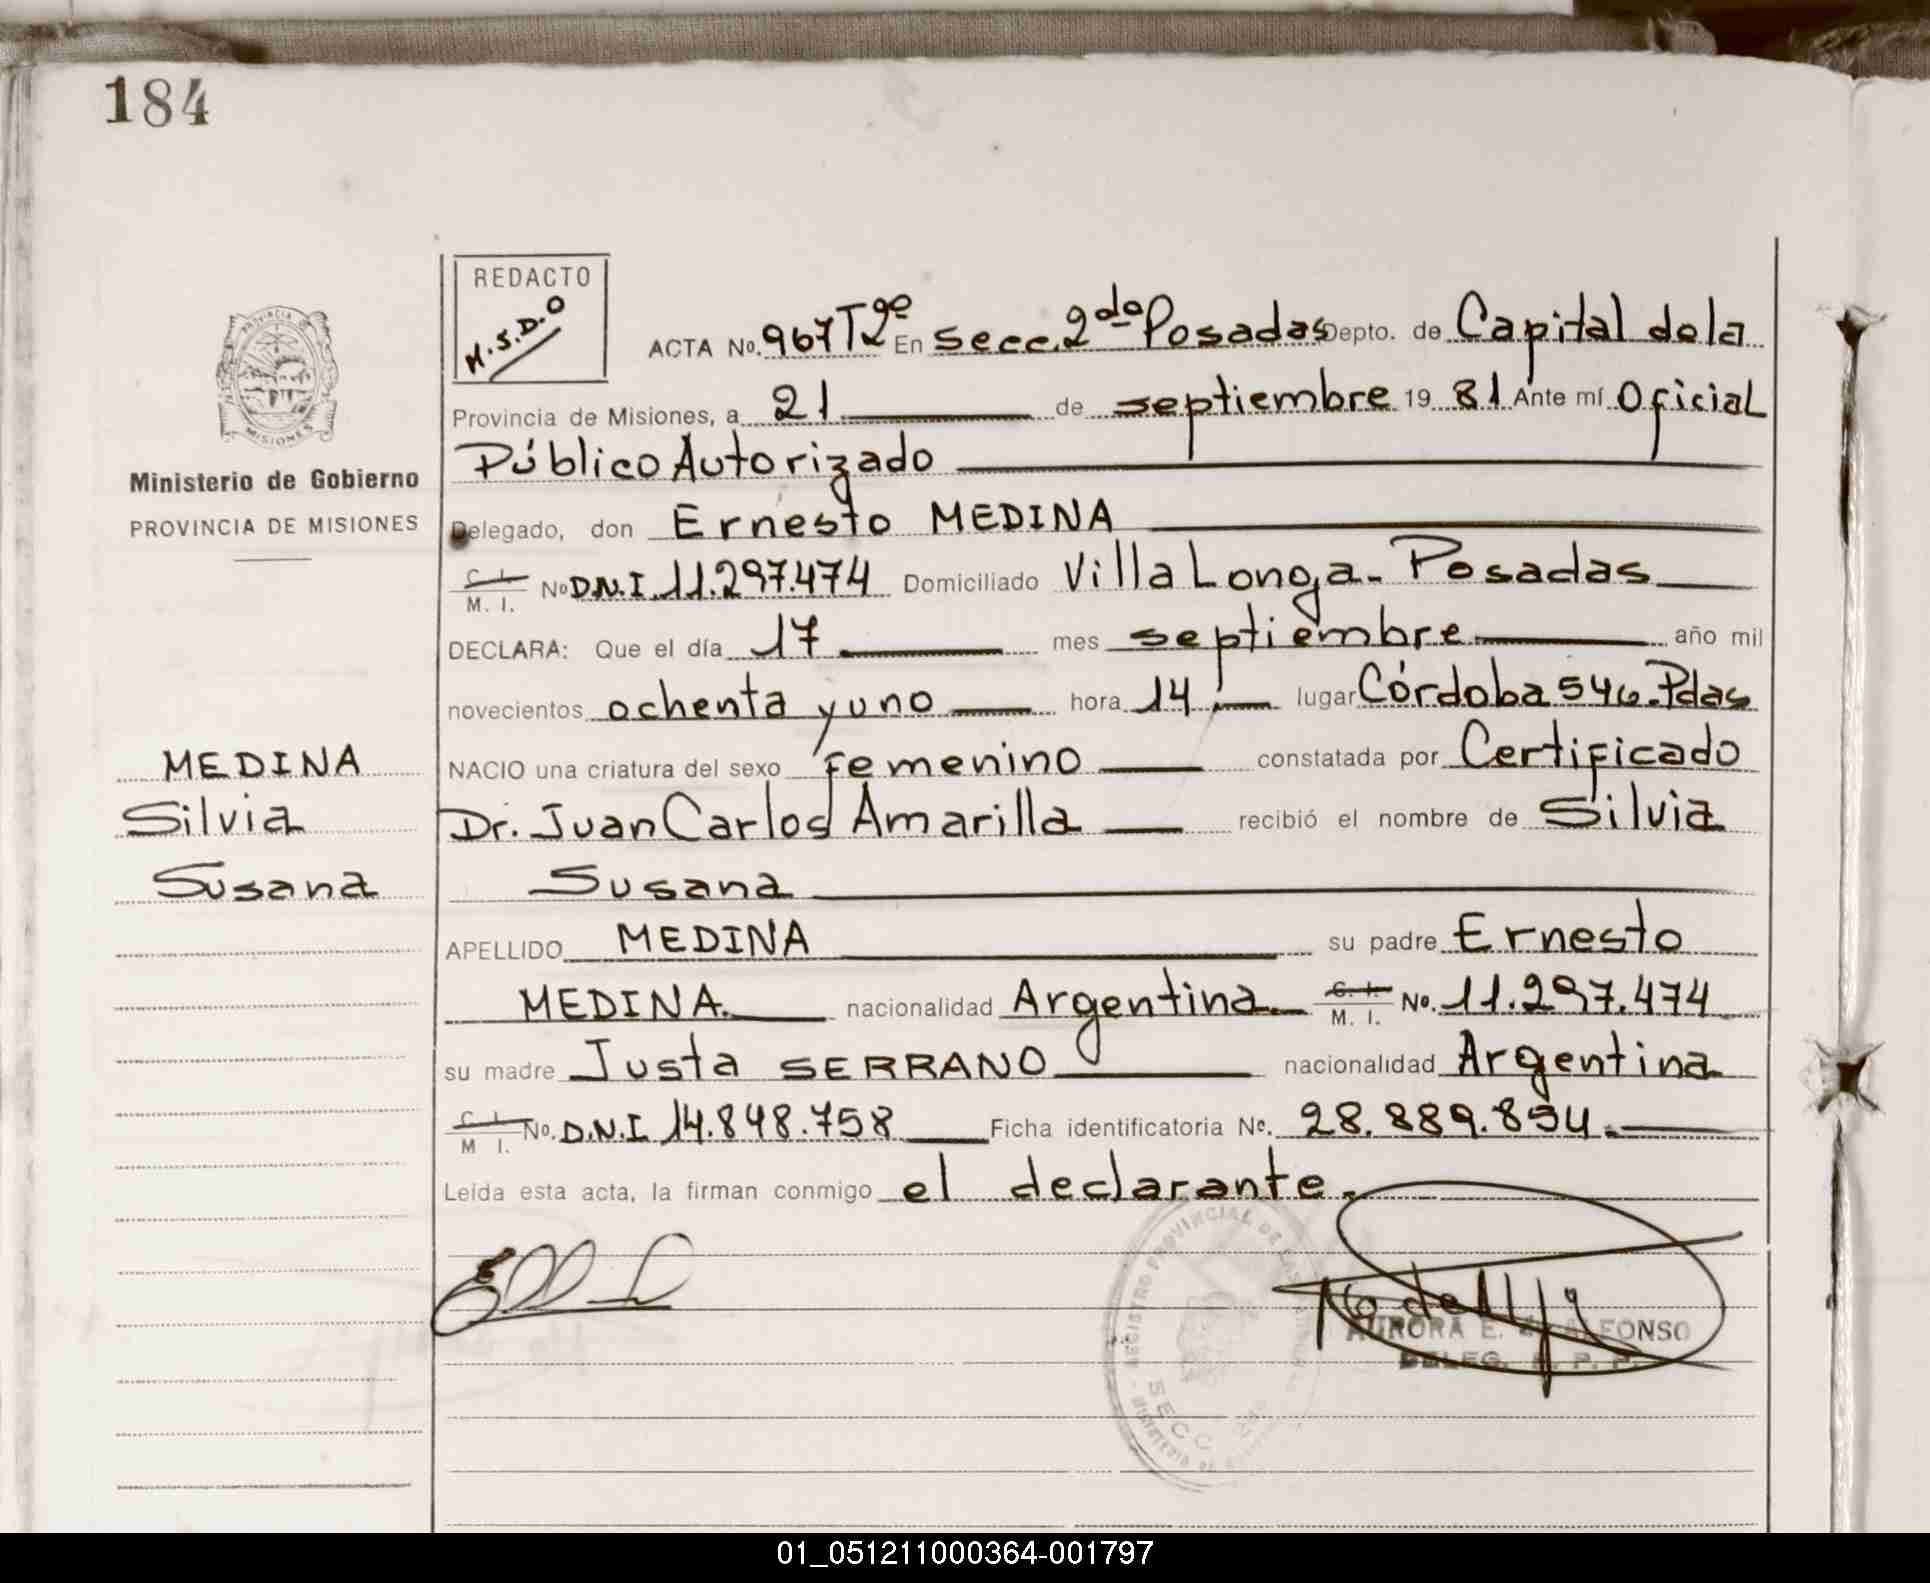 184
REDACTO
M.S.D.O
ACTA No. 967 T2º En Secc. 2da Posadas Depto. de Capital de la
Provincia de Misiones, a 21 de septiembre 19 81 Ante mí Oficial
Público Autorizado
Delegado, don Ernesto MEDINA
C. I.
M. I. No D.N.I. 11.297.474 Domiciliado Villa Longa - Posadas
DECLARA: Que el día 17 mes septiembre año mil
novecientos ochenta y uno hora 14 lugar Córdoba 546. Pdas
NACIO una criatura del sexo femenino constatada por Certificado
Dr. Juan Carlos Amarilla recibió el nombre de Silvia
Susana
APELLIDO MEDINA su padre Ernesto
MEDINA. nacionalidad Argentina C. I.
M. I. No. 11.297.474
su madre Justa SERRANO nacionalidad Argentina
C. I.
M I. No. D.N.I 14.848.758 Ficha identificatoria No. 28.889.894.
Leída esta acta, la firman conmigo el declarante.
PROVINCIA DE
MISIONES
Ministerio de Gobierno
PROVINCIA DE MISIONES
MEDINA
Silvia
Susana
REGISTRO PROVINCIAL DE LAS
SECC
MINISTERIO DE
AURORA E. ALFONSO
DELEG. R. P. P.
01_051211000364-001797